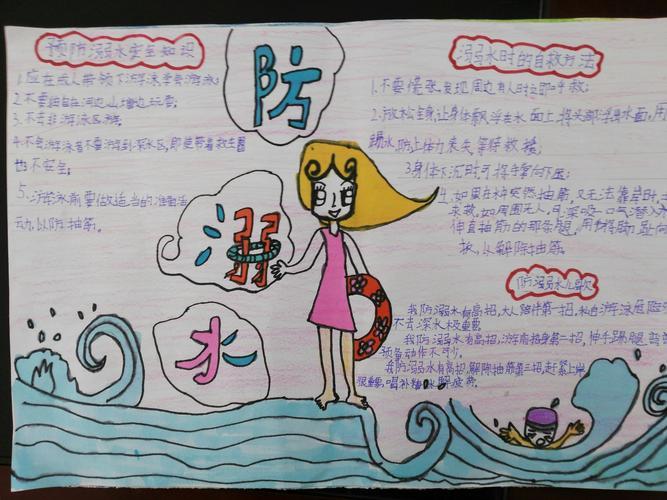 预防溺水安全知识
1.应在成人带领下游泳学会游泳;
2.不要独自在河边山塘边玩耍;
3.不去非游泳区游;
4.不会游泳者不要游到深水区,即使带着救生圈
也不安全;
5.游泳前要做适当的准备活
动,以防抽筋。
防
溺
水
溺水时的自救方法
1.不要慌张,发现周边有人时立即呼救;
2.放松全身,让身体飘浮在水面上,将头部浮出水面,用
踢水,防止体力丧失,等待救援;
3.身体下沉时,可将手掌向下压;
4.如果在水中突然抽筋,又无法靠岸时,立
求救。如周围无人,可深吸一口气潜入
伸直抽筋的那条腿,用手将脚趾向
扳,以解除抽筋。
防溺水儿歌
我防溺水有高招,大人陪伴第一招,私自游泳危险
不去深水极重要
我防溺水有高招,游前热身第二招,伸手踢腿弯
预备动作不可少。
我防溺水有高招,解除抽筋第三招,赶紧上岸
很重要,喝补糖水解疲劳。